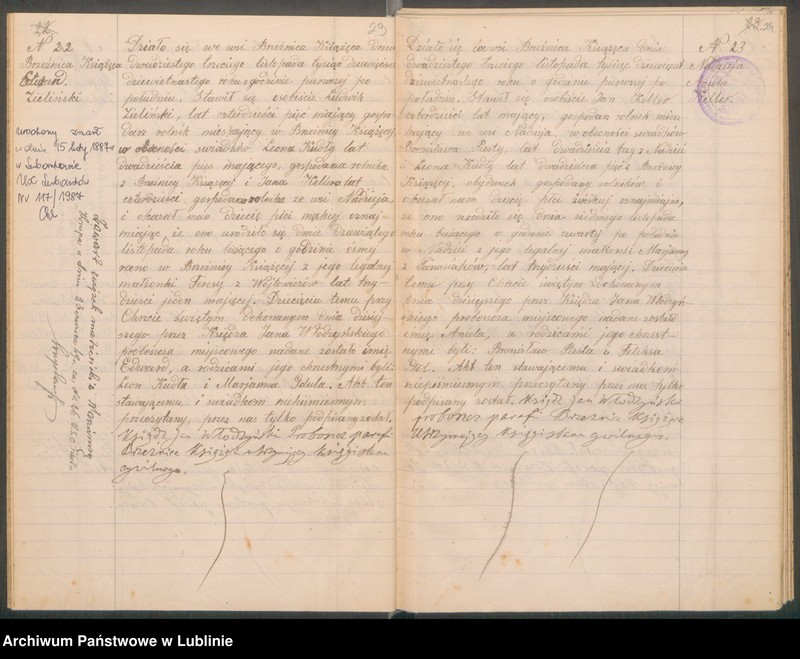 23
N 22
Brzeźnica Książęca
Edward
Zieliński
urodzony zmarł
w dniu 15 luty 1987 r
w Lubartowie
USC Lubartów
Nr 117/1987
Działo się we wsi Brzeźnica Książęca dnia
dwudziestego trzeciego listopada tysiąc dziewięćset
dziewiętnastego roku o godzinie pierwszej po
południu. Stawił się osobiście Ludwik
Zieliński, lat czterdzieści pięć mający gospo-
darz rolnik mieszkający w Brzeźnicy Książęcej
w obecności świadków Leona Kudły lat
dwadzieścia pięć mającego, gospodarza rolnika
z Brzeźnicy Książęcej i Jana Kellera lat
czterdzieści gospodarza rolnika ze wsi Nadzieja
i okazał nam dziecię płci męskiej oznaj-
miając, że ono urodziło się dnia dziewiątego
listopada roku bieżącego o godzinie ósmej
rano w Brzeźnicy Książęcej z jego legalnej
małżonki Teresy z Wójtowiczów lat trzy-
dzieści jeden mającej. Dziecięciu temu przy
Chrzcie świętym dokonanym dnia dzisiej-
szego przez Księdza Jana Włodzyńskiego
proboszcza miejscowego nadane zostało imię
Edward, a rodzicami jego chrzestnymi byli:
Leon Kudła i Marjanna Gdula. Akt ten
stawającemu i świadkom niepiśmiennym
przeczytany, przez nas tylko podpisany został.
Ksiądz Jan Włodzyński Proboszcz paraf.
Brzeźnice Książęce utrzymujący księgi stanu
cywilnego.
24
N 23
Nadzieja
Aniela
Keller.
Działo się we wsi Brzeźnica Książęca dnia
dwudziestego trzeciego listopada tysiąc dziewięćset
dziewiętnastego roku o godzinie pierwszej po
południu. Stawił się osobiście Jan Keller
czterdzieści lat mający, gospodarz rolnik miesz-
kający we wsi Nadzieja, w obecności świadków
Bronisława Resty, lat dwadzieścia trzy z Nadziei
i Leona Kudły lat dwadzieścia pięć z Brzeźnicy
Książęcej, obydwóch gospodarzy rolników i
okazał nam dziecię płci żeńskiej oznajmiając,
że ono urodziło się dnia siódmego listopada
roku bieżącego o godzinie czwartej po południu
w Nadziei z jego legalnej małżonki Marjanny
z lat trzydzieści mającej. Dziecięciu
temu przy Chrzcie świętym dokonanym
dnia dzisiejszego przez Księdza Jana Włodzyń-
skiego proboszcza miejscowego nadane zostało
imię Aniela, a rodzicami jego chrzest-
nymi byli: Bronisław Resta i Feliksa
Akt ten stawającemu i świadkom
niepiśmiennym przeczytany przez nas tylko
podpisany został. Ksiądz Jan Włodzyński
proboszcz paraf Brzeźnice Książęce
utrzymujący księgi stanu cywilnego.
Archiwum Państwowe w Lublinie